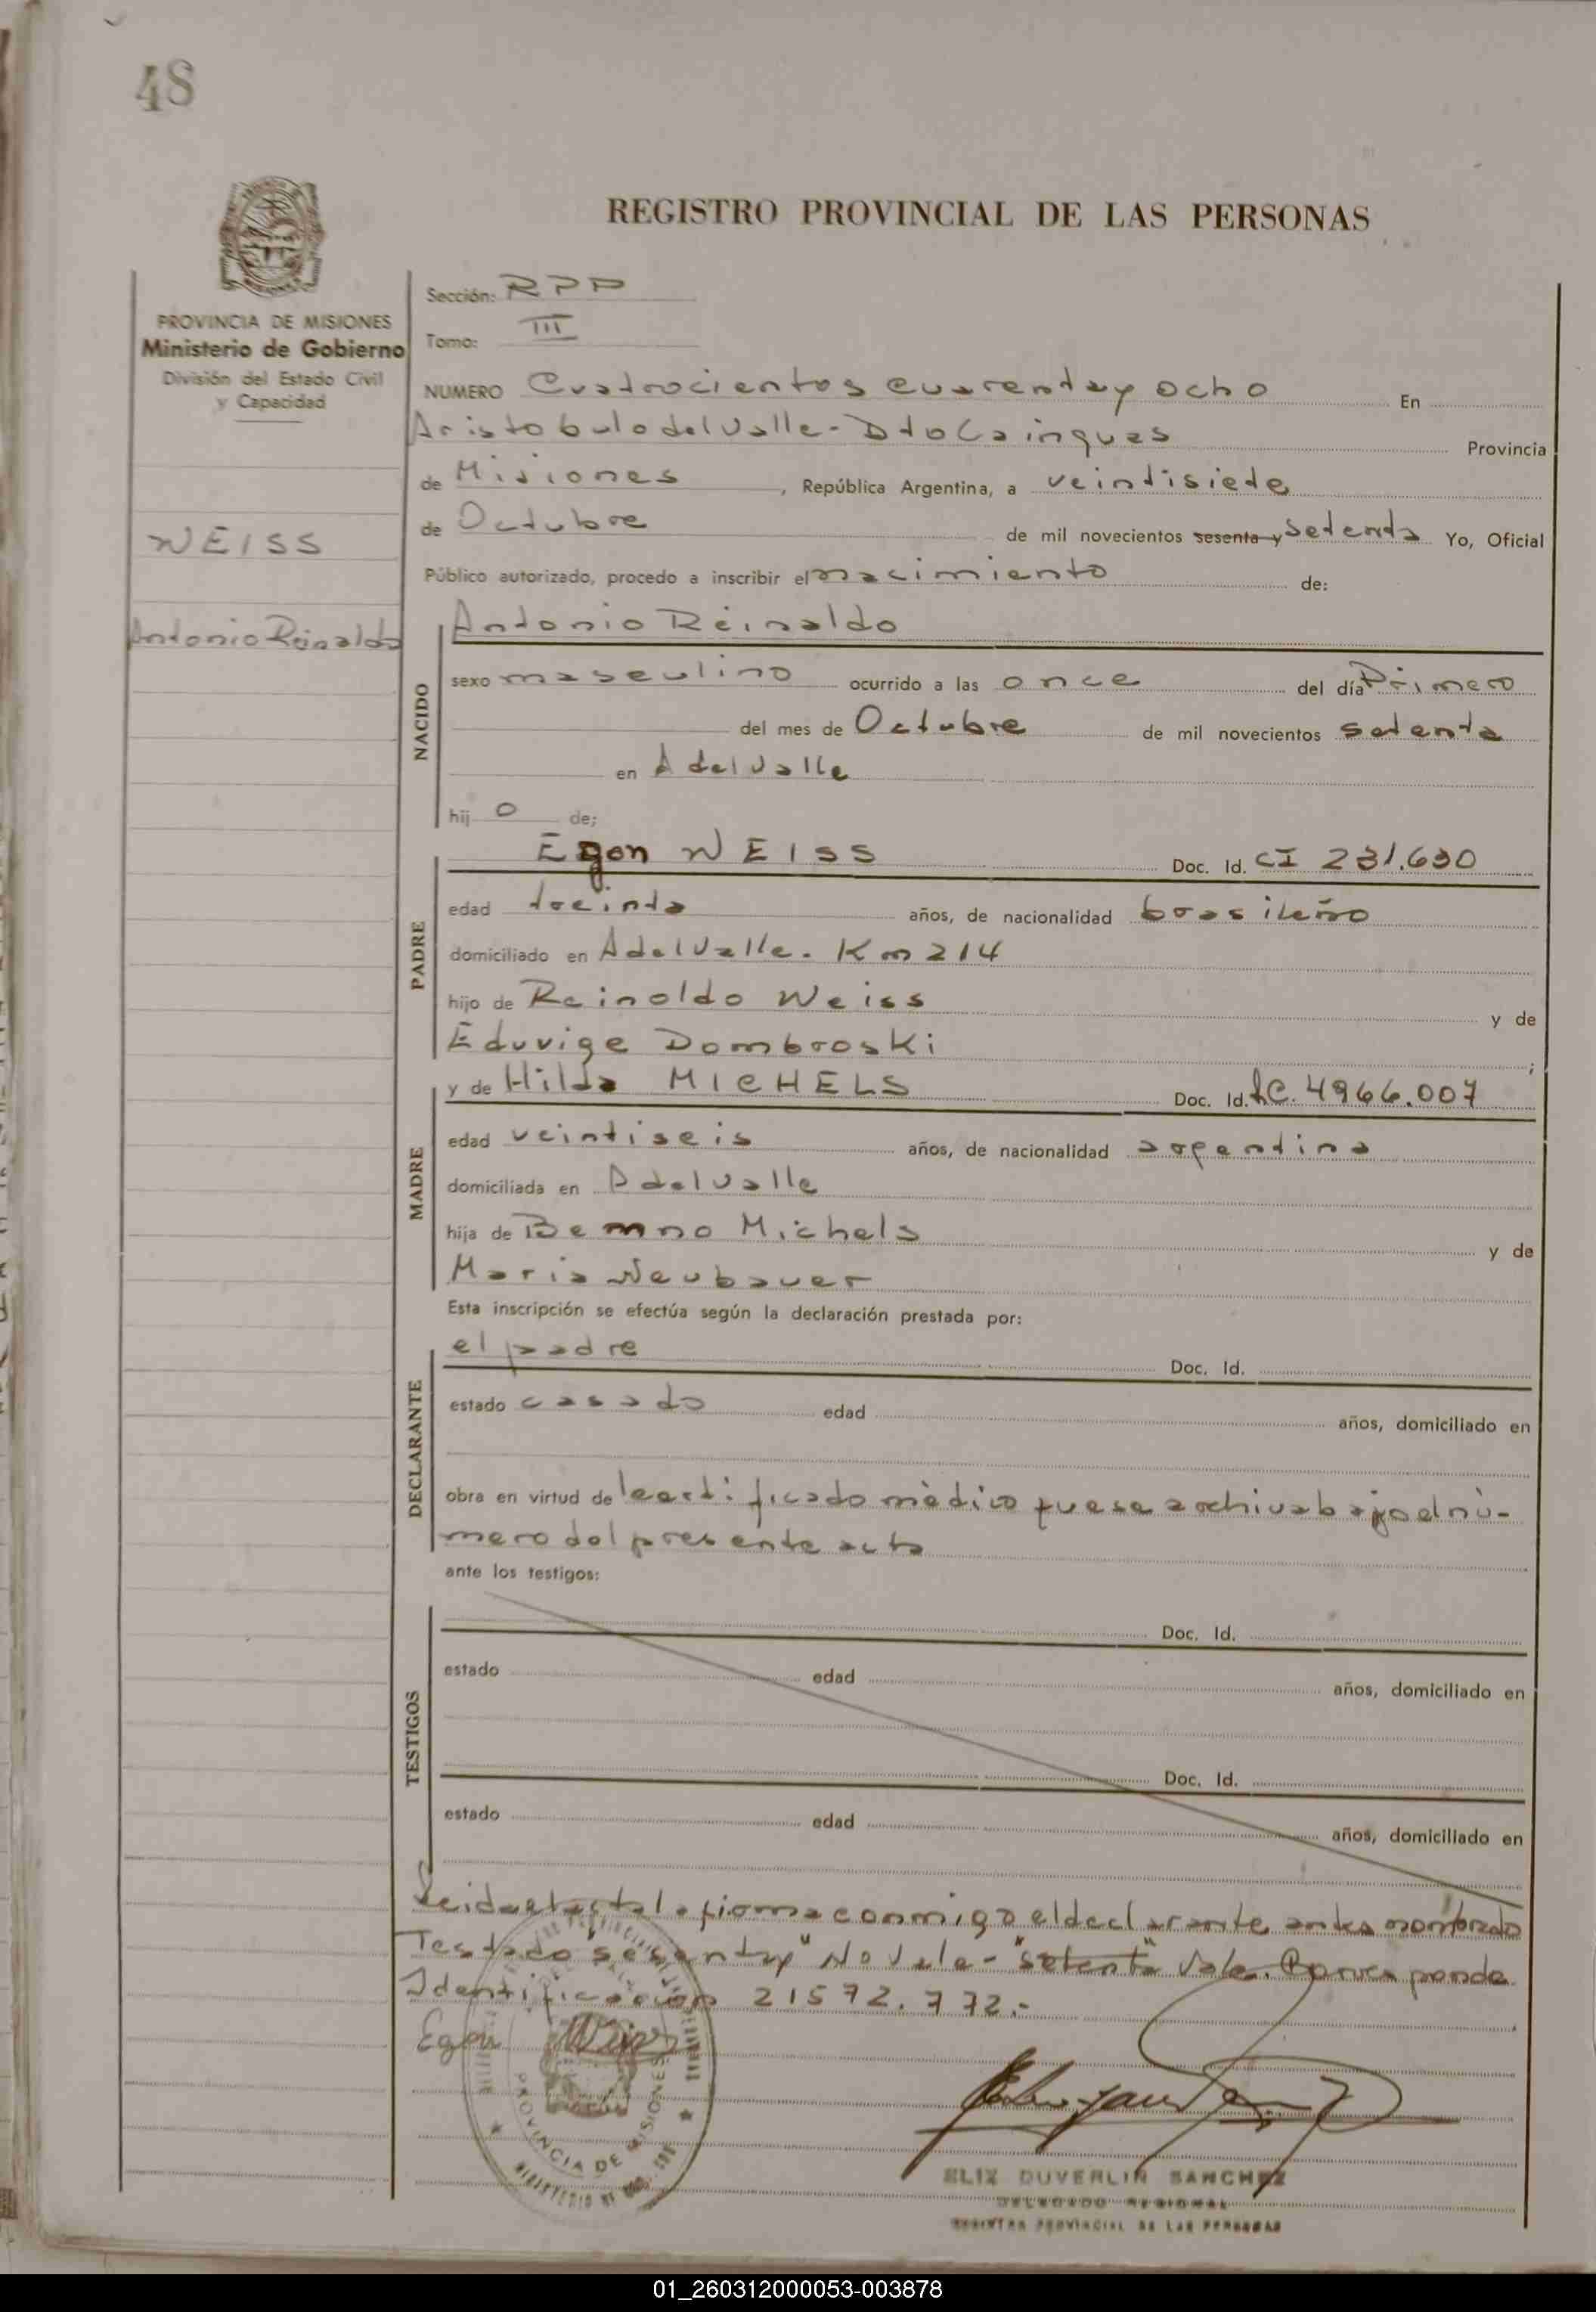 48
REGISTRO PROVINCIAL DE LAS PERSONAS
PROVINCIA DE MISIONES
Ministerio de Gobierno
División del Estado Civil
y Capacidad
WEISS
Antonio Reinaldo
Sección: RPP
Tomo: III
NUMERO Cuatrocientos cuarenta y ocho En
Aristobulo del Valle - Dto Cainguas Provincia
de Misiones, República Argentina, a veintisiete
de Octubre de mil novecientos sesenta y Setenta Yo, Oficial
Público autorizado, procedo a inscribir el nacimiento de:
NACIDO
Antonio Reinaldo
sexo masculino ocurrido a las once del día Primero
del mes de Octubre de mil novecientos setenta
en A del Valle
hij o de;
PADRE
Egon WEISS Doc. Id. CI 231.630
edad treinta años, de nacionalidad brasileño
domiciliado en A del Valle. Km 214
hijo de Reinoldo Weiss y de
Eduvige Dombroski ;
MADRE
y de Hilda MICHELS Doc. Id. LC. 4966.007
edad veintiseis años, de nacionalidad argentina
domiciliada en A del Valle
hija de Bemno Michels y de
Maria Neubauer
Esta inscripción se efectúa según la declaración prestada por:
DECLARANTE
el padre Doc. Id.
estado casado edad años, domiciliado en
obra en virtud de certificado mèdico que se archiva bajo el nù-
mero del presente acta
ante los testigos:
TESTIGOS
Doc. Id.
estado edad años, domiciliado en
Doc. Id.
estado edad años, domiciliado en
Leida el acta la firma conmigo el declarante antes nombrado
Testado "sesenta y" No Vale - "setenta" Vale. Corresponde
Identificación 21572.772.-
Egon Weiss
PROVINCIA DE MISIONES
ELIX DUVERLIN SANCHEZ
DELEGADO REGIONAL
REGISTRO PROVINCIAL DE LAS PERSONAS
01_260312000053-003878